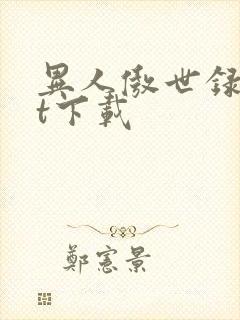 異人傲世録
t下載
鄭憲景